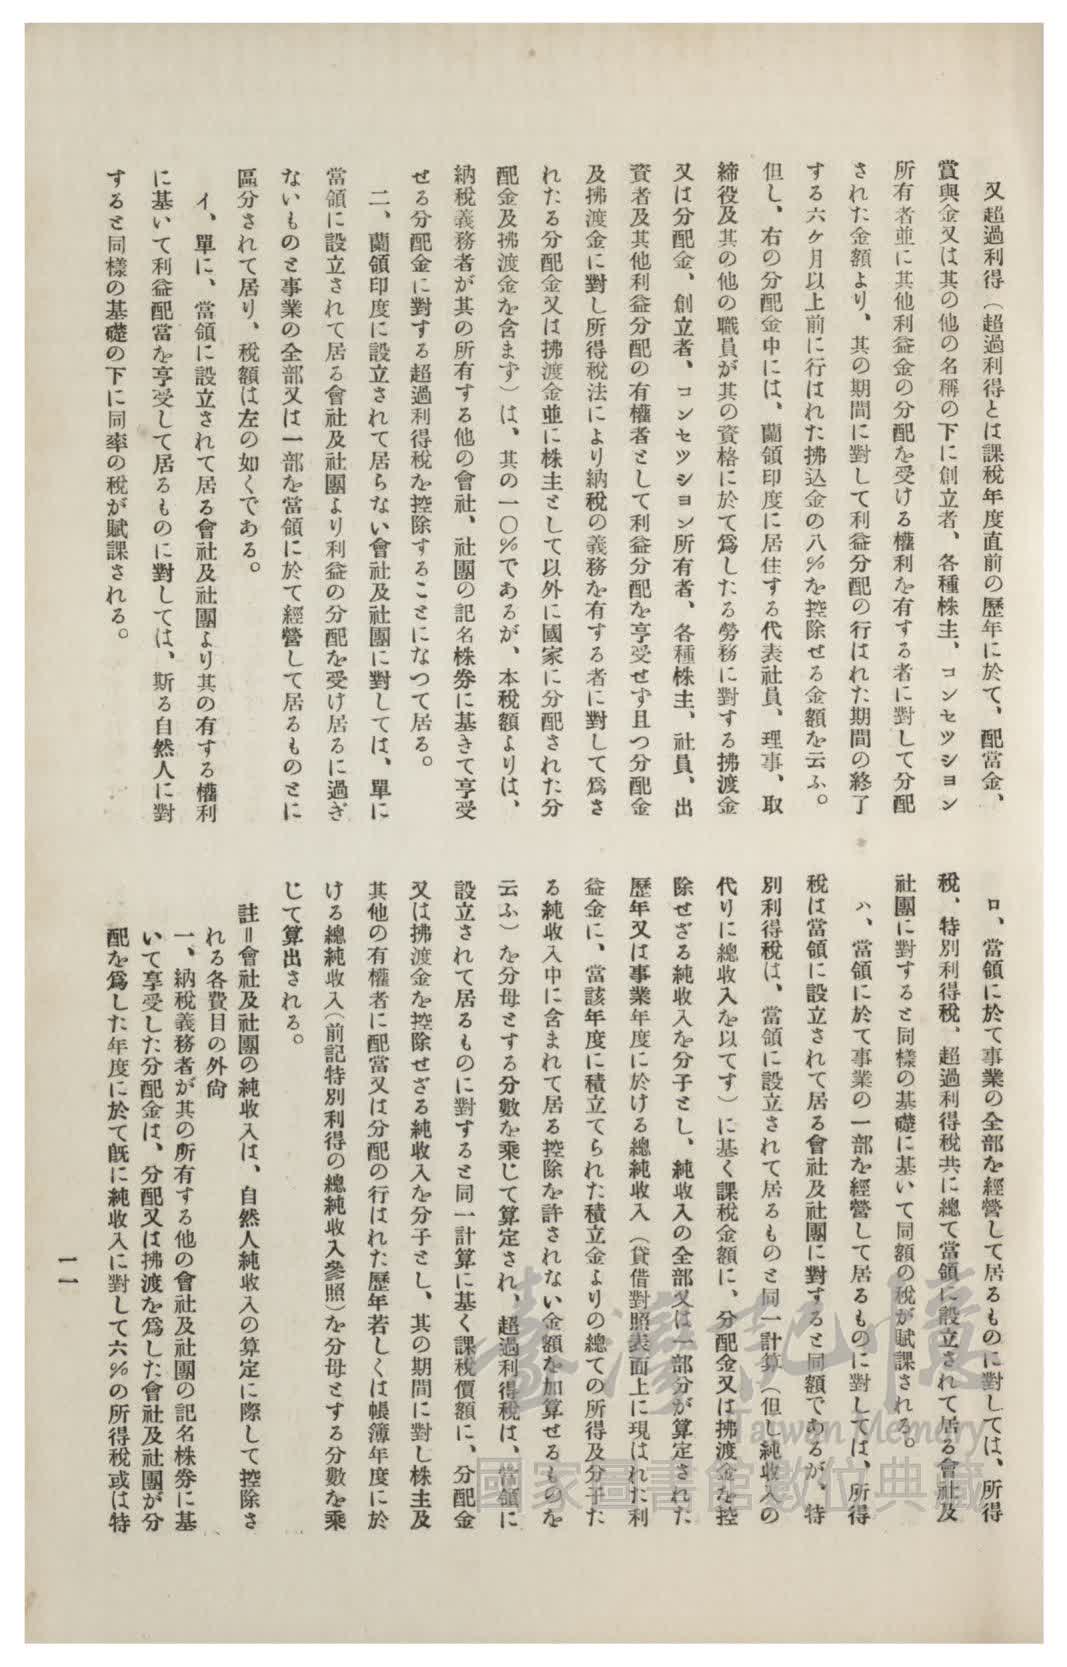 又超過利得（超過利得とは課税年度直前の歴年に於て、配當金、
賞與金又は其の他の名稱の下に創立者、各種株主、コンセツシヨン
所有者並に其他利益金の分配を受ける權利を有する者に對して分配
された金額より、其の期間に對して利益分配の行はれた期間の終了
する六ケ月以上前に行はれた拂込金の八％を控除せる金額を云ふ。
但し、右の分配金中には、蘭領印度に居住する代表社員、理事、取
締役及其の他の職員が其の資格に於て爲したる勞務に對する拂渡金
又は分配金、創立者、コンセツシヨン所有者、各種株主、社員、出
資者及其他利益分配の有權者として利益分配を享受せず且つ分配金
及拂渡金に對し所得税法により納税の義務を有する者に對して爲さ
れたる分配金又は拂渡金並に株主として以外に國家に分配された分
配金及拂渡金を含まず）は、其の一〇％であるが、本税額よりは、
納税義務者が其の所有する他の會社、社團の記名株券に基きて享受
せる分配金に對する超過利得税を控除することになつて居る。
二、蘭領印度に設立されて居らない會社及社團に對しては、單に
當領に設立されて居る會社及社團より利益の分配を受け居るに過ぎ
ないものと事業の全部又は一部を當領に於て經營して居るものとに
區分されて居り、税額は左の如くである。
イ、單に、當領に設立されて居る會社及社團より其の有する權利
に基いて利益配當を享受して居るものに對しては、斯る自然人に對
すると同樣の基礎の下に同率の税が賦課される。
ロ、當領に於て事業の全部を經營して居るものに對しては、所得
税、特別利得税、超過利得税共に總て當領に設立されて居る會社及
社團に對すると同樣の基礎に基いて同額の税が賦課される。
ハ、當領に於て事業の一部を經營して居るものに對しては、所得
税は當領に設立されて居る會社及社團に對すると同額であるが、特
別利得税は、當領に設立されて居るものと同一計算（但し純收入の
代りに總收入を以てす）に基く課税金額に、分配金又は拂渡金を控
除せざる純收入を分子とし、純收入の全部又は一部分が算定された
歴年又は事業年度に於ける總純收入（貸借對照表面上に現はれた利
益金に、當該年度に積立てられた積立金よりの總ての所得及分子た
る純收入中に含まれて居る控除を許されない金額を加算せるものを
云ふ）を分母とする分數を乘じて算定され、超過利得税は、當領に
設立されて居るものに對すると同一計算に基く課税價額に、分配金
又は拂渡金を控除せざる純收入を分子とし、其の期間に對し株主及
其他の有權者に配當又は分配の行はれた歴年若しくは帳簿年度に於
ける總純收入（前記特別利得の總純收入參照）を分母とする分數を乘
じて算出される。
註＝會社及社團の純收入は、自然人純收入の算定に際して控除さ
れる各費目の外尙
一、納税義務者が其の所有する他の會社及社團の記名株券に基
いて享受した分配金は、分配又は拂渡を爲した會社及社團が分
配を爲した年度に於て既に純收入に對して六％の所得税或は特
一一
臺灣記憶
Taiwan Memory
國家圖書館數位典藏